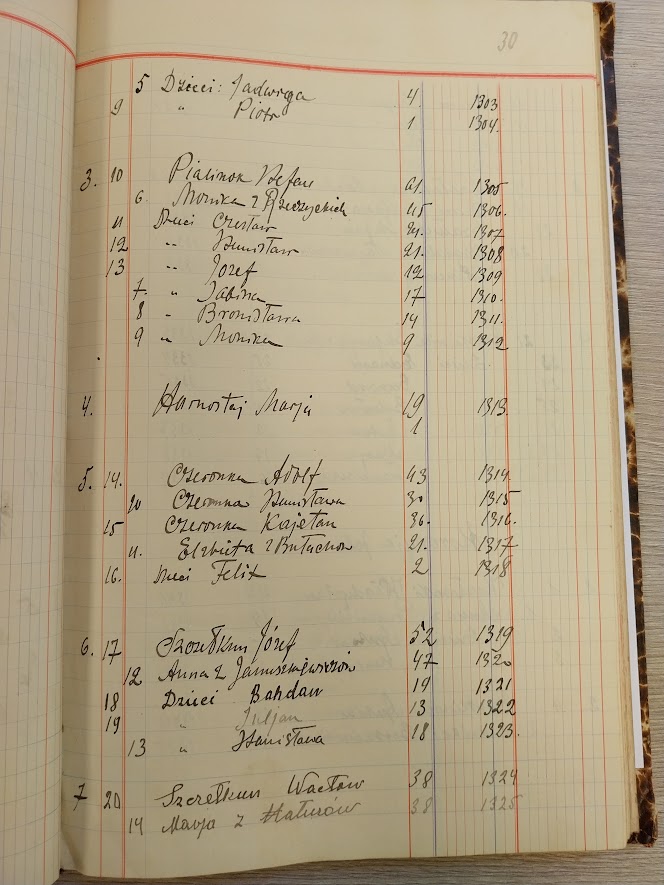 30
5 Dzieci: Jadwiga 4. 1303
9 " Piotr 1 1304.
3. 10 Pialinok Stefan 61. 1305
6 Monika z Rzeczyckich 45 1306.
11 Dzieci Czesław 24. 1307
12 " Stanisław 21. 1308
13 " Józef 12 1309
7. " Sabina 17 1310.
8 " Bronisława 14 1311.
9 " Monika 9 1312
4. Harnostaj Marja 19 1313.
1
5. 14. Czeronka Adolf 43 1314.
20 Czeronka Stanisława 30 1315
15 Czeronka Kajetan 36. 1316.
11. Elżbieta z 21. 1317
16. Dzieci Felix 2 1318
6. 17 Józef 52 1319
12 Anna z Januszkiewiczów 47 1320
18 Dzieci Bohdan 19 1321
19 " Juljan 13 1322
13 " Stanisława 18 1323.
7 20 Szretkun Wacław 38 1324
14 Marja z 38 1325